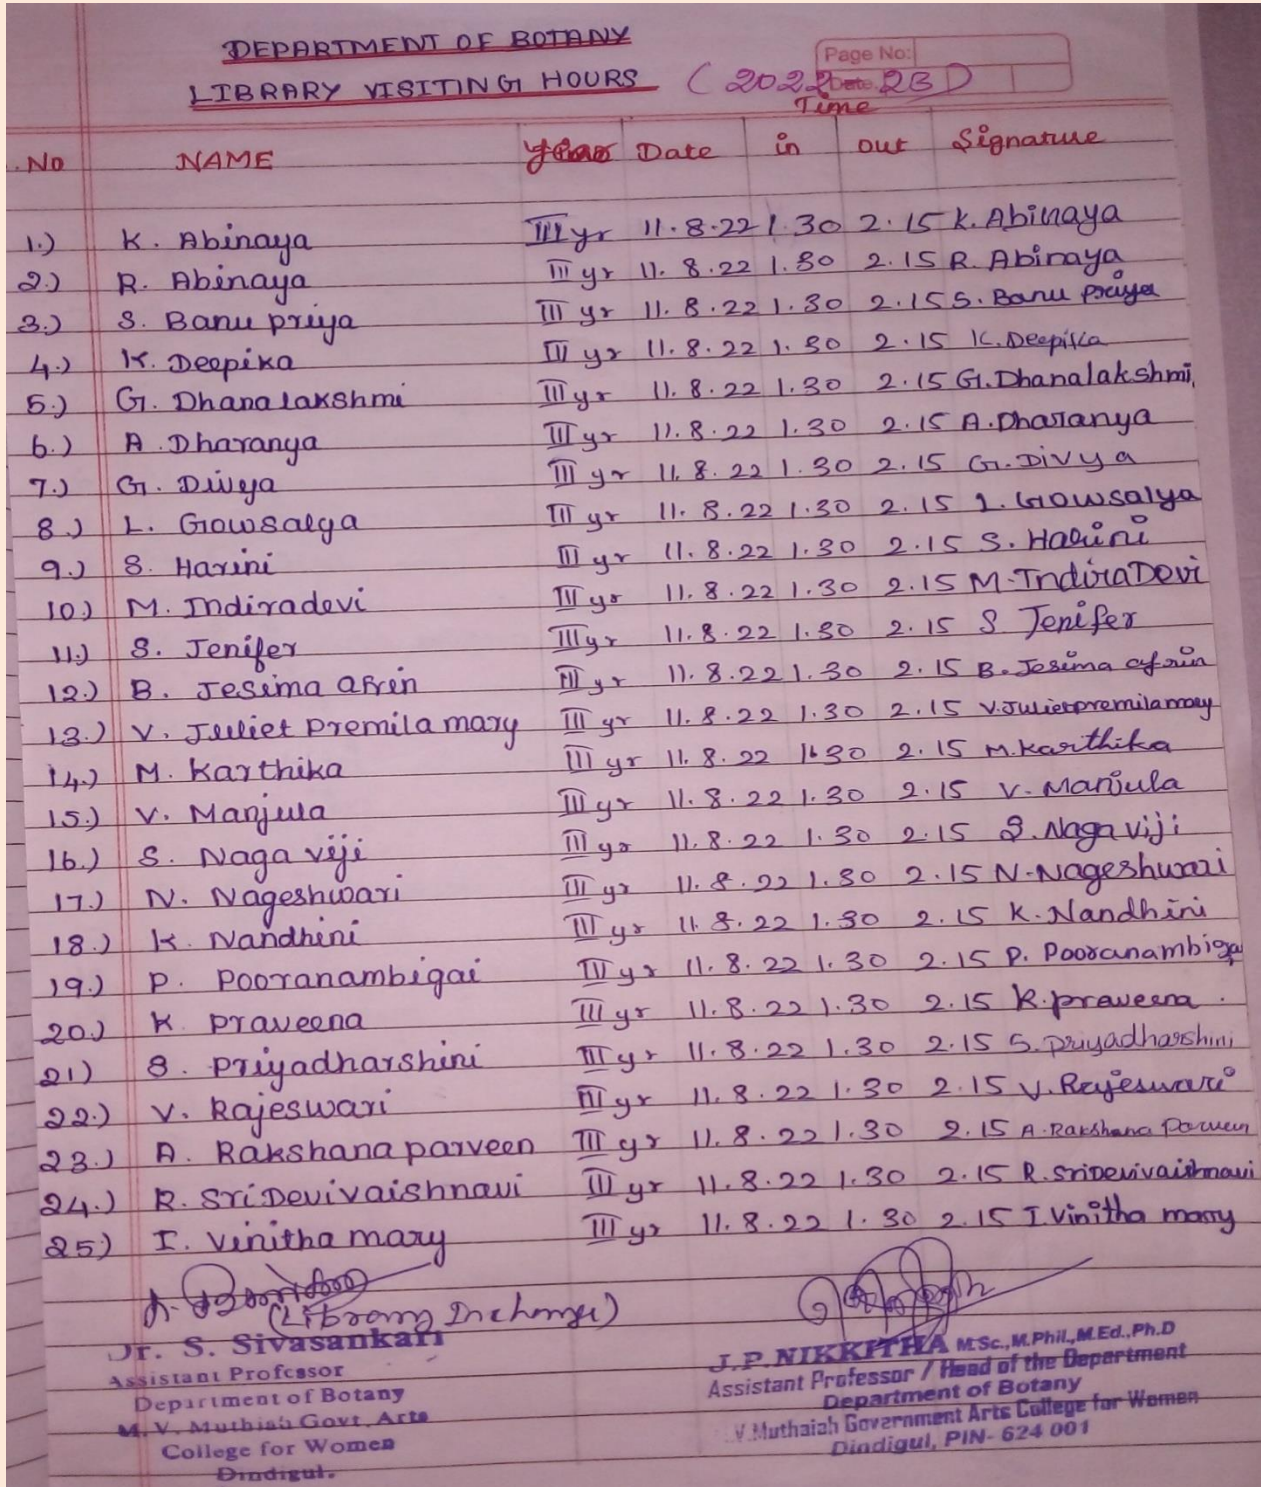 DEPARTMENT OF BOTANY
Page No:
LIBRARY VISITING HOURS (2022-23)
Date
Time
.No NAME Year Date in out Signature
1.) K. Abinaya III yr 11.8.22 1.30 2.15 K. Abinaya
2.) R. Abinaya III yr 11.8.22 1.30 2.15 R. Abinaya
3.) S. Banu priya III yr 11.8.22 1.30 2.15 S. Banu priya
4.) K. Deepika III yr 11.8.22 1.30 2.15 K. Deepika
5.) G. Dhanalakshmi III yr 11.8.22 1.30 2.15 G. Dhanalakshmi
6.) A. Dharanya III yr 11.8.22 1.30 2.15 A. Dharanya
7.) G. Divya III yr 11.8.22 1.30 2.15 G. Divya
8.) L. Gowsalya III yr 11.8.22 1.30 2.15 L. Gowsalya
9.) S. Harini III yr 11.8.22 1.30 2.15 S. Harini
10.) M. Indiradevi III yr 11.8.22 1.30 2.15 M. IndiraDevi
11.) S. Jenifer III yr 11.8.22 1.30 2.15 S. Jenifer
12.) B. Jesima afrin III yr 11.8.22 1.30 2.15 B. Jesima afrin
13.) V. Juliet premila mary III yr 11.8.22 1.30 2.15 V. Julietpremilamary
14.) M. Karthika III yr 11.8.22 1.30 2.15 M. Karthika
15.) V. Manjula III yr 11.8.22 1.30 2.15 V. Manjula
16.) S. Naga viji III yr 11.8.22 1.30 2.15 S. Naga viji
17.) N. Nageshwari III yr 11.8.22 1.30 2.15 N. Nageshwari
18.) K. Nandhini III yr 11.8.22 1.30 2.15 K. Nandhini
19.) P. Pooranambigai III yr 11.8.22 1.30 2.15 P. Pooranambigai
20.) K. Praveena III yr 11.8.22 1.30 2.15 K. praveena.
21) S. Priyadharshini III yr 11.8.22 1.30 2.15 S. priyadharshini
22.) V. Rajeswari III yr 11.8.22 1.30 2.15 V. Rajeswari
23.) A. Rakshana parveen III yr 11.8.22 1.30 2.15 A. Rakshana Parveen
24.) R. Sri Devi vaishnavi III yr 11.8.22 1.30 2.15 R. SriDevivaishnavi
25) I. Vinitha mary III yr 11.8.22 1.30 2.15 I. Vinitha mary
(Library Incharge)
Dr. S. Sivasankari
Assistant Professor
Department of Botany
M. V. Muthiah Govt. Arts
College for Women
Dindigul.
J.P.NIKKITHA M.Sc.,M.Phil.,M.Ed.,Ph.D
Assistant Professor / Head of the Department
Department of Botany
V.Muthaiah Government Arts College for Women
Dindigul, PIN- 624 001